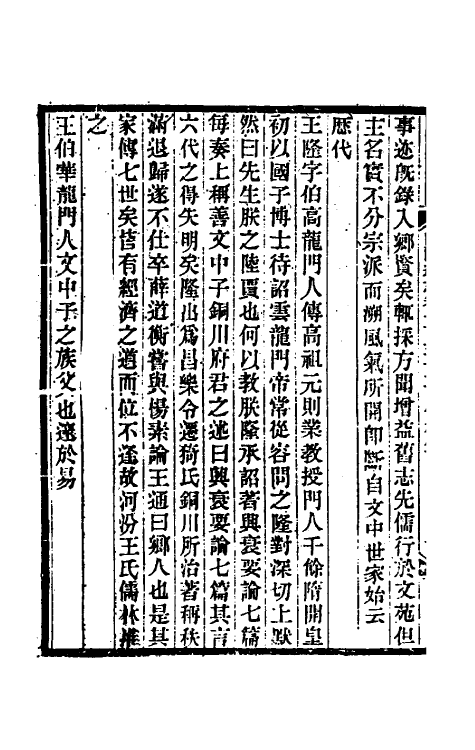 事迹既錄入鄉賢矣輒採方聞增益舊志先儒行於文苑但
主名實不分宗派而溯風氣所開卽斷自文中世家始云
歷代
王隆字伯高龍門人傳高祖元則業敎授門人千餘隋開皇
初以國子博士待詔雲龍門帝常從容問之隆對深切上默
然曰先生朕之陸賈也何以敎朕隆承詔著興衰要論七篇
每奏上稱善文中子銅川府君之述曰興衰要論七篇其言
六代之得失明矣隆出爲昌樂令遷猗氏銅川所治著稱秩
滿退歸遂不仕卒薛道衡嘗與楊素論王通曰鄉人也是其
家傳七世矣皆有經濟之道而位不逢故河汾王氏儒林推
之
王伯華龍門人文中子之族父也邃於易